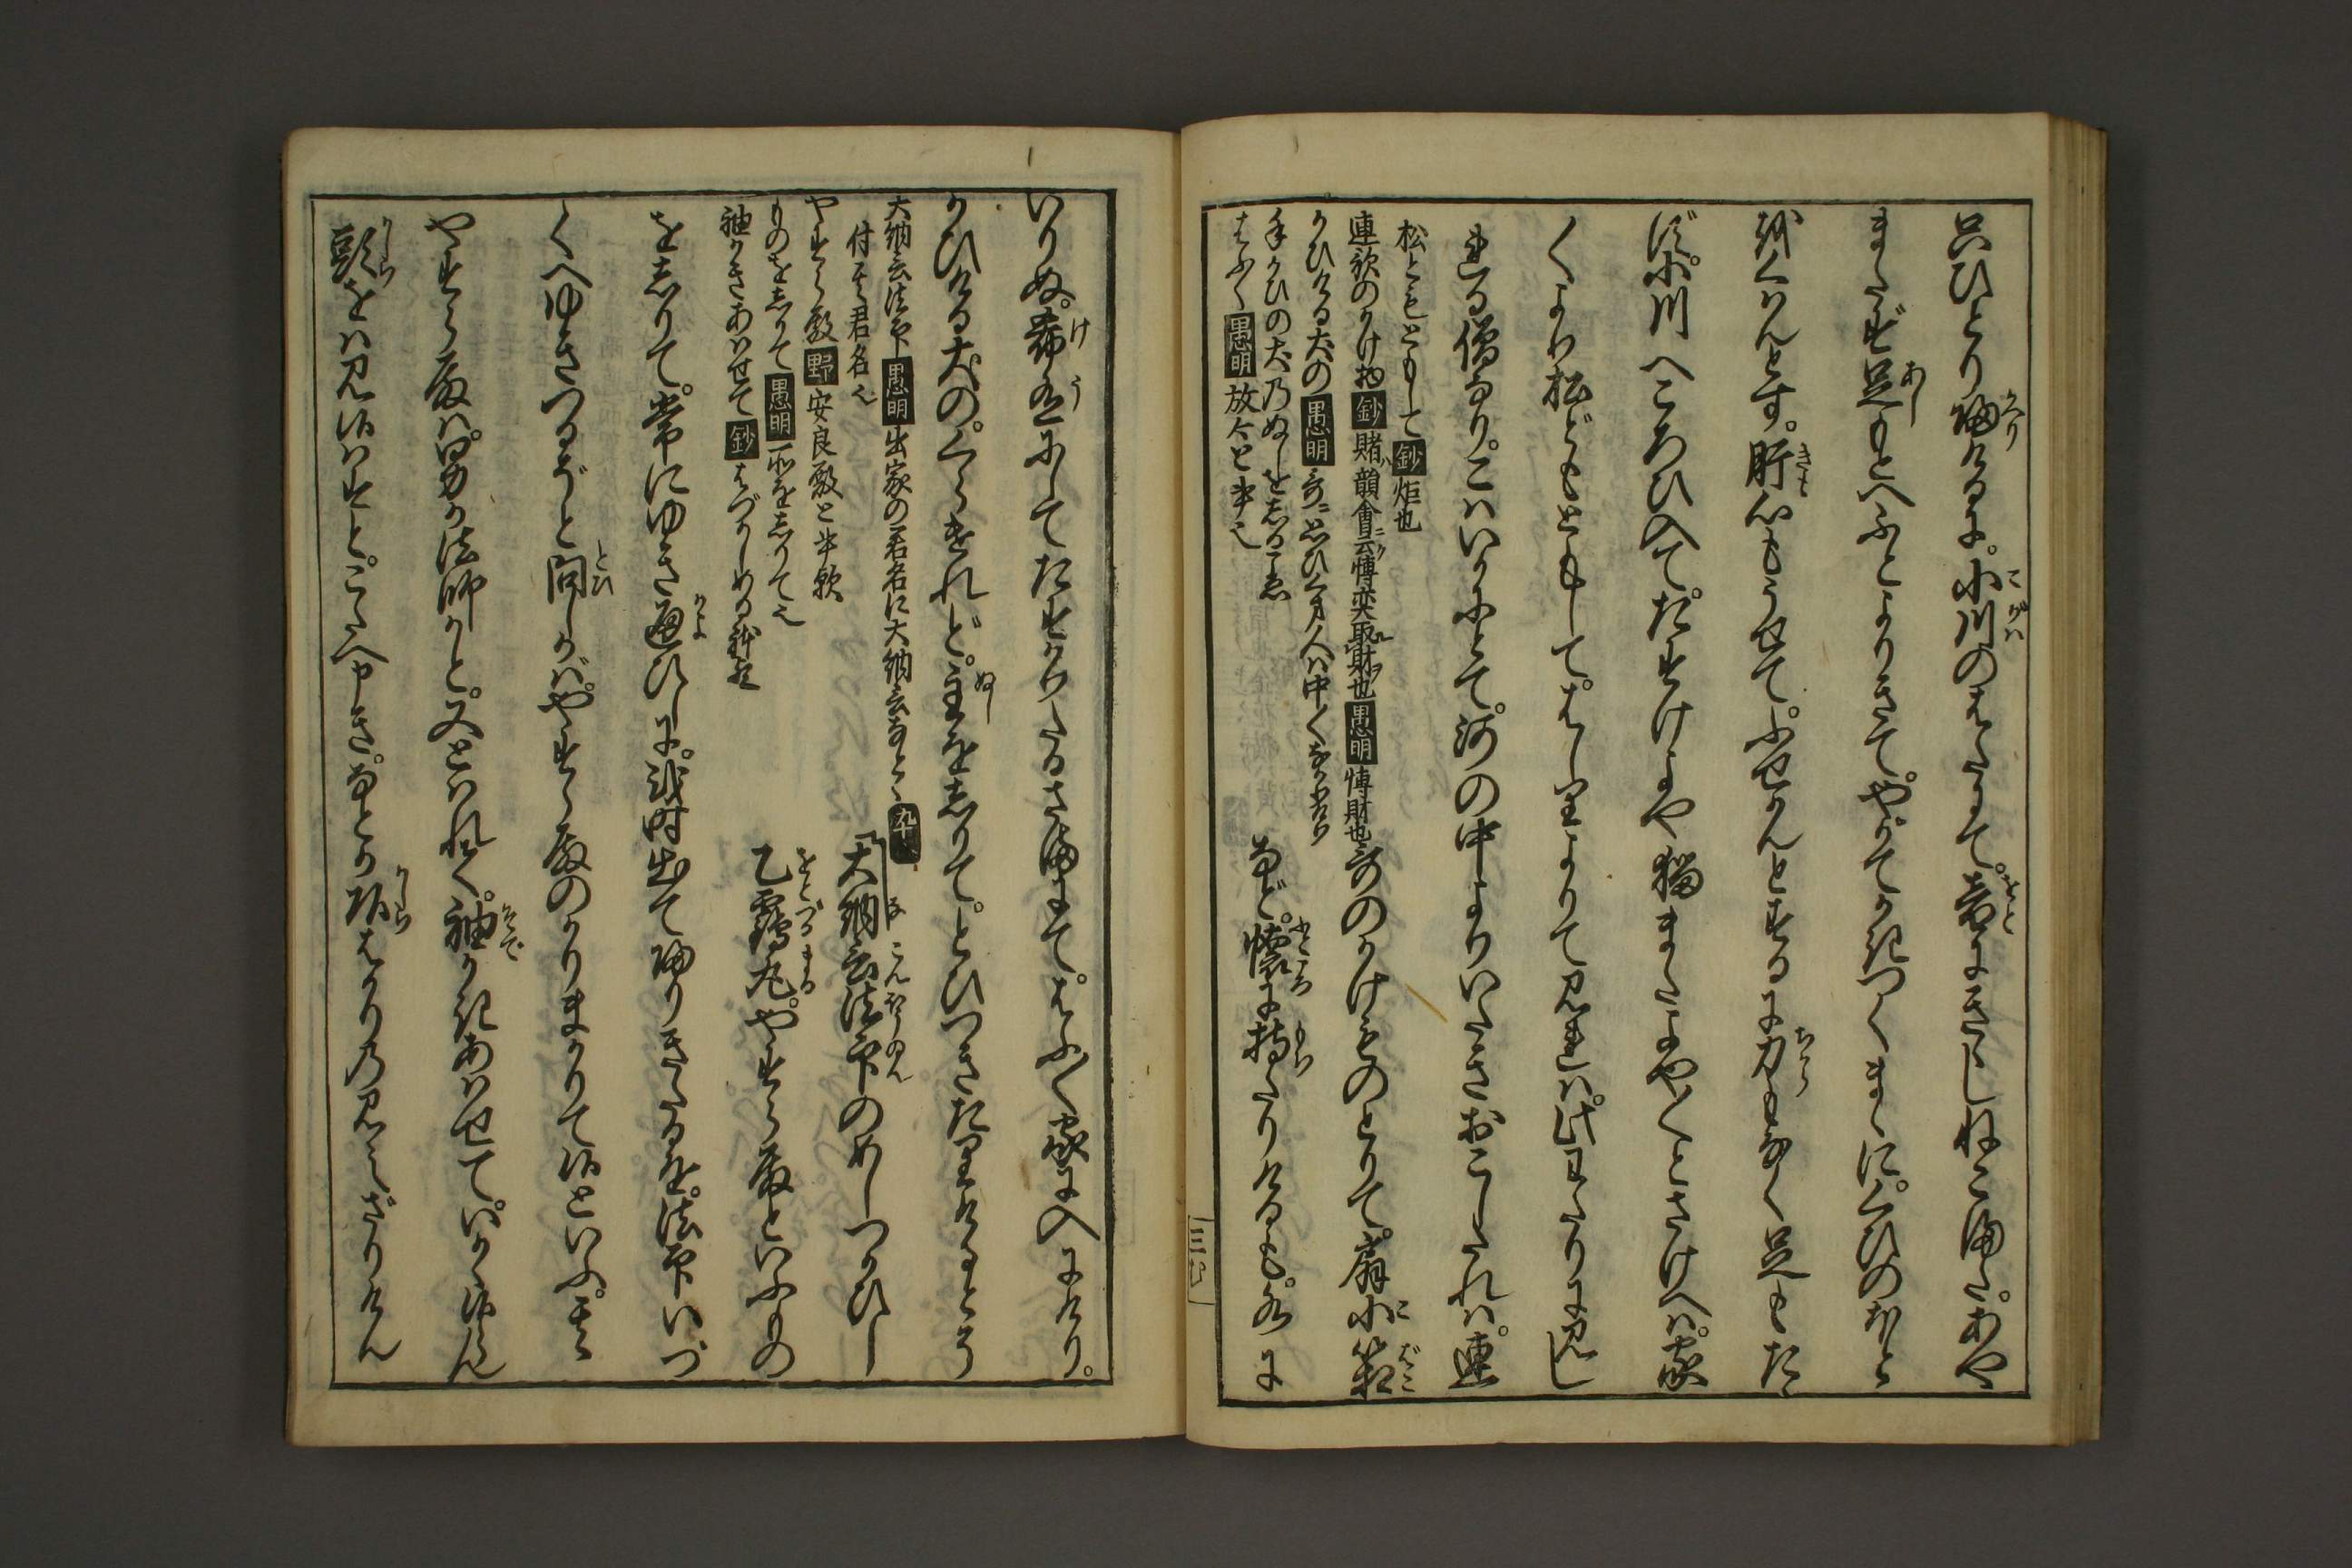 只ひとり帰けるに。小川のはたにて。音にきこえしねこまた。あや
またず足もとへふとよりきて。やがてかきつくまゝに。くひのほと
をくはんとす。肝心もうせて。ふせかんとするに力もなく足もたゝ
ず。小川へころひ入て。たすけよや猫またよや〱とさけへは。家
〱より松どもともして。はしりよりて見れは。此わたりに見し
れる僧なり。こはいかにとて。河の中よりいたきおこしたれは。連
松ともともして 鈔 炬也
連歌のかけ物 鈔 賭韻會云博奕取財也 愚明 博財也
哥のかけものとりて。扇小箱
かひける犬の 愚明
手かひの犬乃ぬしをしる
はふ〱 愚明 放々と書也
など。懐に持たりけるも。水に
いりぬ。希有にしてたすかりたるさまにて。はふ〱家に入にけり。
かひける犬の。くらけれど。主をしりて。とひつきたりけるとそ
大納言法印 愚明 出家の君名に大納言なとゝ
付る君名也
やすら殿 野 安良殿と書歟
ものをしりて 愚明 所をしりて也
袖かきあはせて 鈔 はづかしめる躰也
九十 大納言法印のめしつかひし
乙靏丸。やすら殿といふもの
をしりて。常にゆき通ひしに。或時出て帰りきたるを。法印いづ
くへゆきつるぞと問しかば。やすら殿のかりまかりて候といふ。其
やすら殿は。男か法師かと。又とはれて。袖かきあはせて。いかゝ候らん
頭をは見候はすと。こたへ申き。なとか頭はかりの見えざりけん
三ノ四